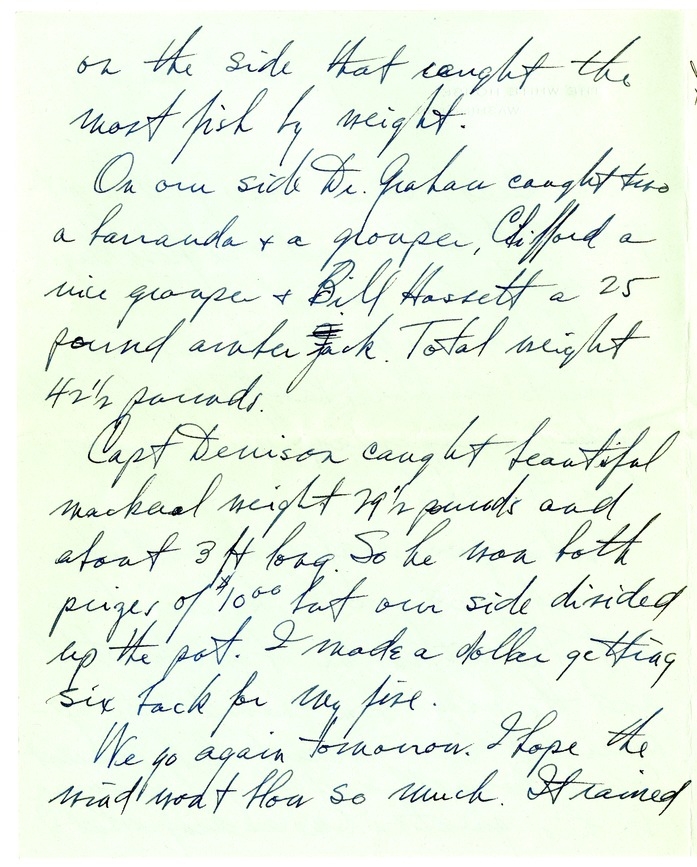 on the side that caught the
most fish by weight.
On our side Dr. Graham caught two
a barracuda + a grouper, Clifford a
nice grouper + Bill Hassett a 25
pound amber jack. Total weight
42 1/2 pounds.
Capt Dennison caught beautiful
mackeral weight 29 1/2 pounds and
about 3 ft long. So he won both
prizes of $10 00 but our side divided
up the pot. I made a dollar getting
six back for my five.
We go again tomorrow. I hope the
wind won't blow so much. It rained